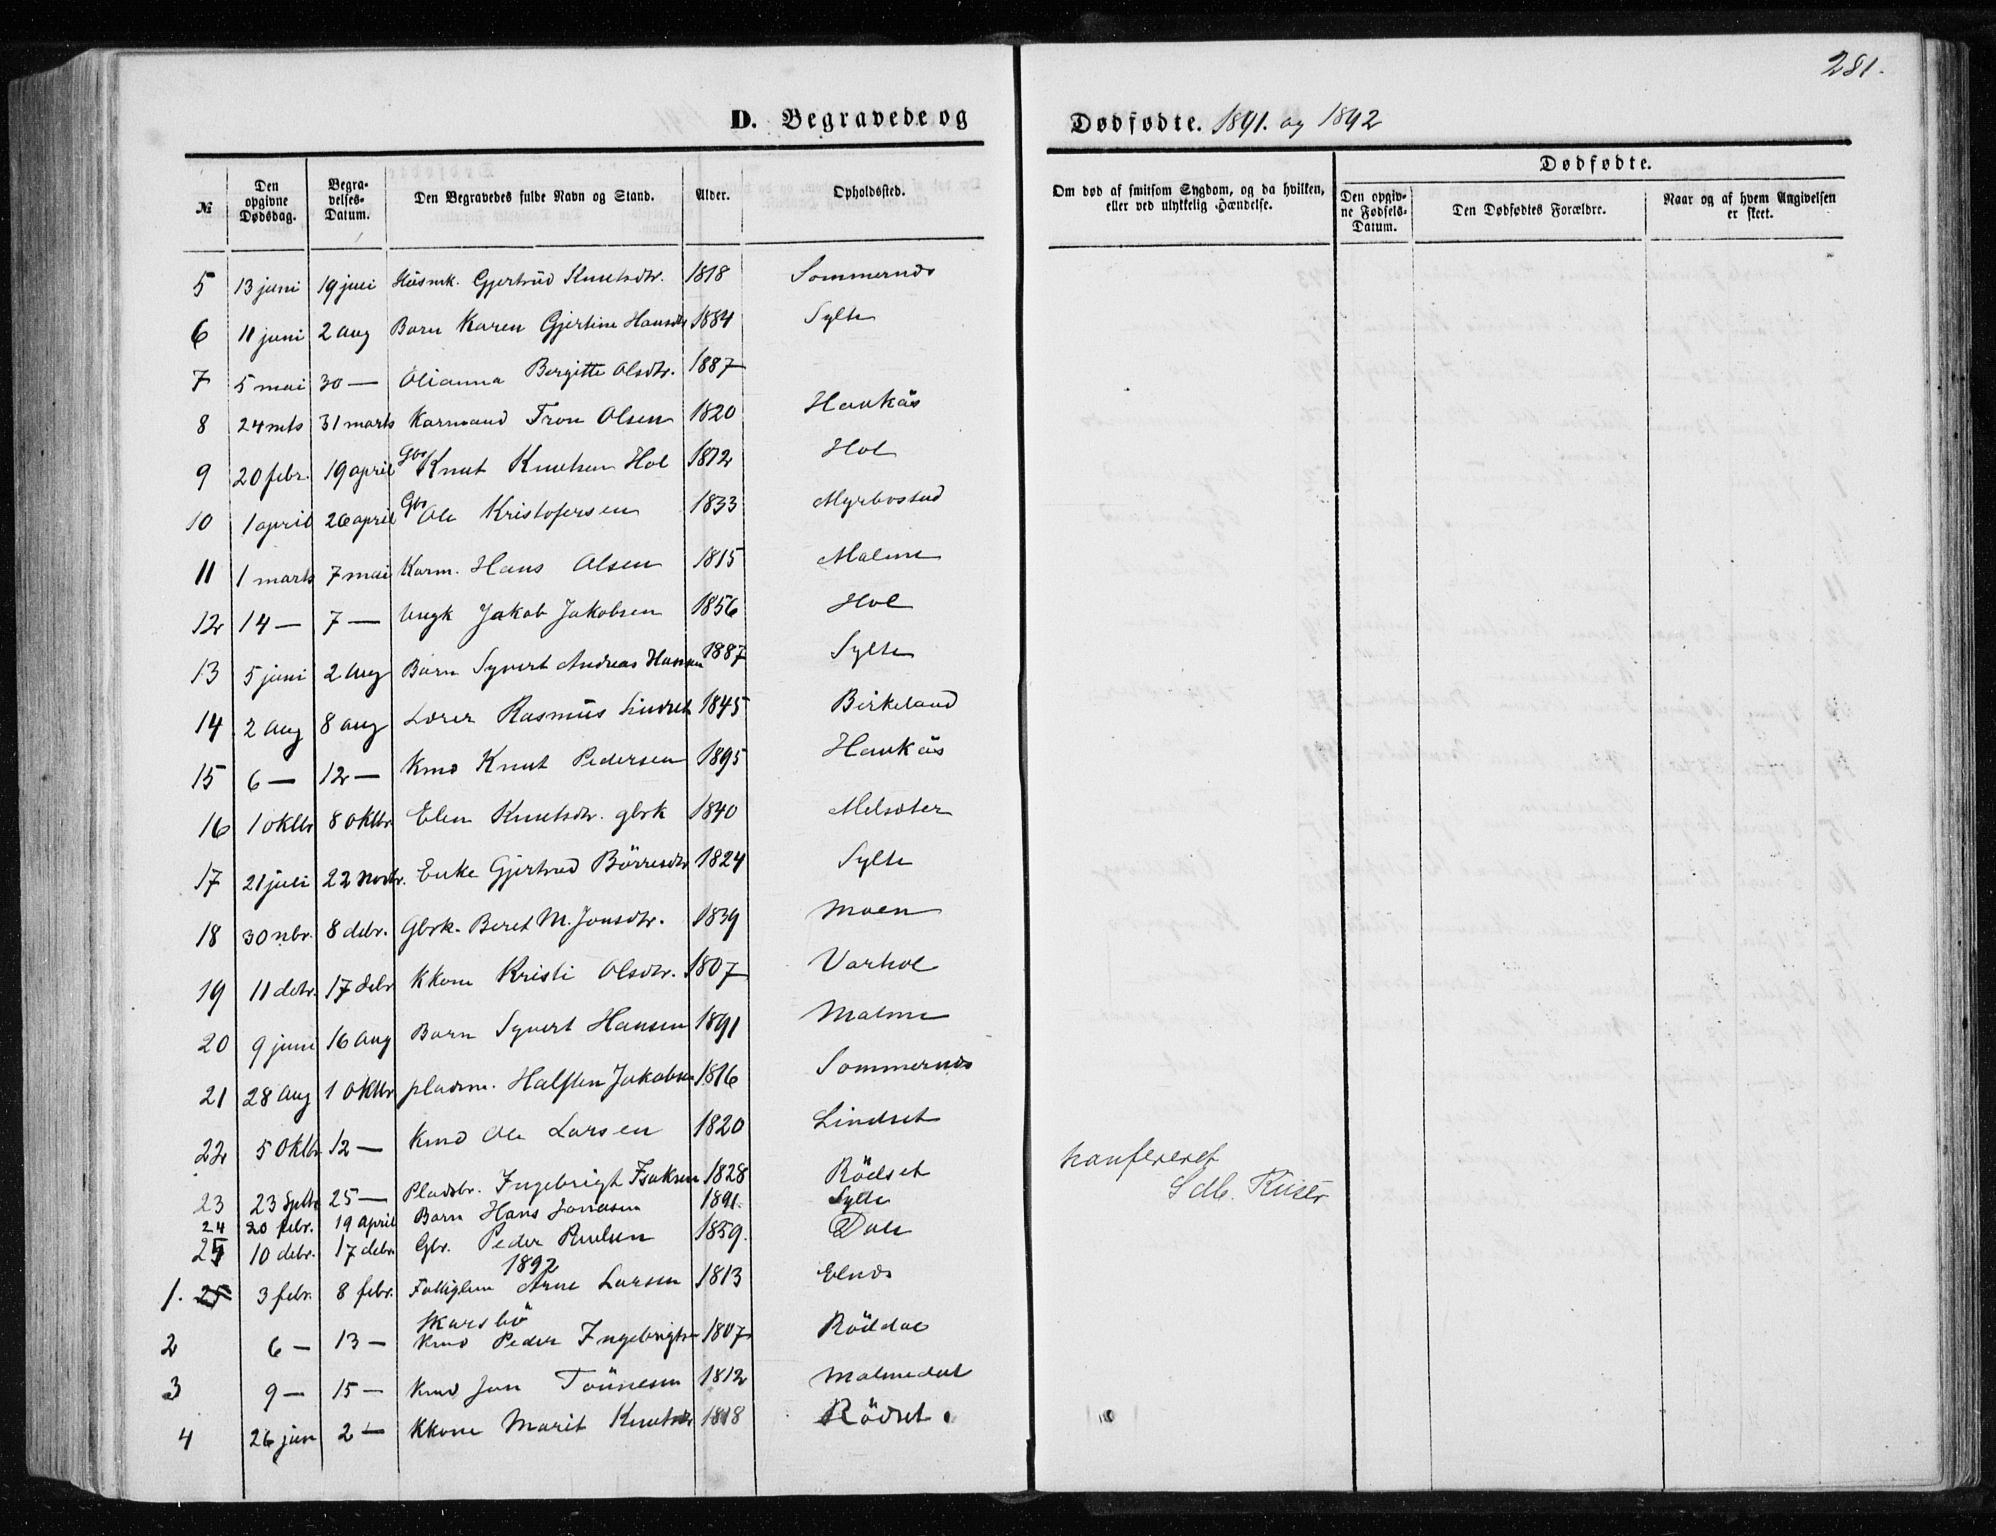 281.
D. Begravede og Dødfødte. 1891. og 1892
№
Den opgivne Dødsdag.
Begravelses-Datum.
Den Begravedes fulde Navn og Stand.
Alder.
Opholdssted.
Om død af smitsom Sygdom, og da hvilken, eller ved ulykkelig Hændelse.
Dødfødte.
Den opgivne Fødsels-Datum.
Den Dødfødtes Forældre.
Naar og af hvem Angivelsen er skeet.
5 13 juni 19 juli Husmk. Gjertrud Knutsdtr. 1818 Sommernes
6 11 juni 2 aug Barn Karen Gjertine Hansdtr 1884 Sylte
7 5 mai 30 — Olianna Bergitte Olsdtr. 1887 —
8 24 mts 31 marts Karmand Tron Olsen 1820 Haukäs
9 20 febr. 19 april Gbr Knut Knutsen Hol 1812 Hol
10 1 april 26 april Gbr Ole Kristofersen 1833 Myrbostad
11 1 marts 7 mai Karm. Hans Olsen 1815 Malme
12 14 — 7 — Ungk Jakob Jakobsen 1856 Hol
13 5 juni 2 aug Barn Syvert Andreas Hansen 1887 Sylte
14 2 aug 8 aug Lærer Rasmus Lindset 1845 Birkeland
15 6 — 12 — Kmd Knut Pedersen 1895 Haukäs
16 1 oktbr 8 oktbr. Elen Knutsdtr. gbrk 1840 Melsæter
17 21 juli 22 novbr. Enke Gjertrud Börresdtr 1824 Sylte
18 30 nbr. 8 debr. Gbrk. Beret M. Jonsdtr. 1839 Moen
19 11 debr. 17 debr Kkone Kristi Olsdtr. 1807 Varhol
20 9 juni 16 aug Barn Syvert Hansen 1891 Malme
21 28 aug 1 oktbr pladsm. Halsten Jakobsen 1816 Sommernes
22 5 oktbr 12 — Kmd Ole Larsen 1820 Lindset
23 23 Sptbr 25 — Pladsbr. Ingebrigt Isaksen 1828 Rödset
24 20 febr. 19 april Barn Hans Jonasen 1891. Sylte
25 10 debr. 17 debr. Gbr. Peder Paulsen 1859. Dale
konfereret
Sdb. Küster
1892
1. 25 3 febr. 8 febr. Fattiglem Arne Larsen 1813 Elnes
Skarsbö
2 6 — 13 — Kmd Peder Ingebrigtsen 1807 Röddal
3 9 — 15 — Kmd Jon Tönnesen 1812 Malmedal
4 26 jan 2 — Kkone Marit Knutsdtr 1818 Rödset